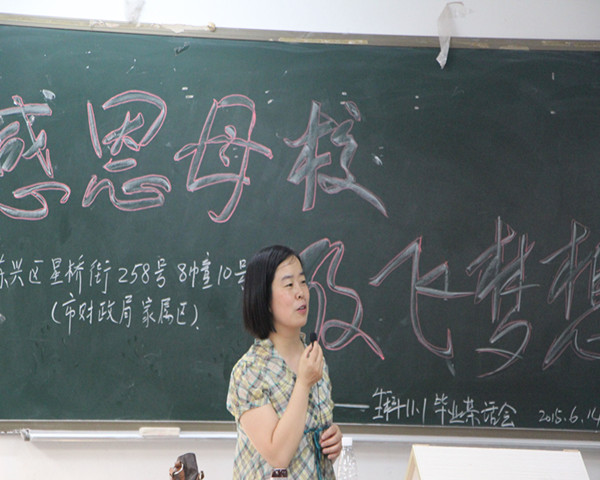 感恩母校
放飞梦想
东兴区星桥街258号8幢10号
(市财政局家属区)
生科11.1毕业茶话会 2015.6.14